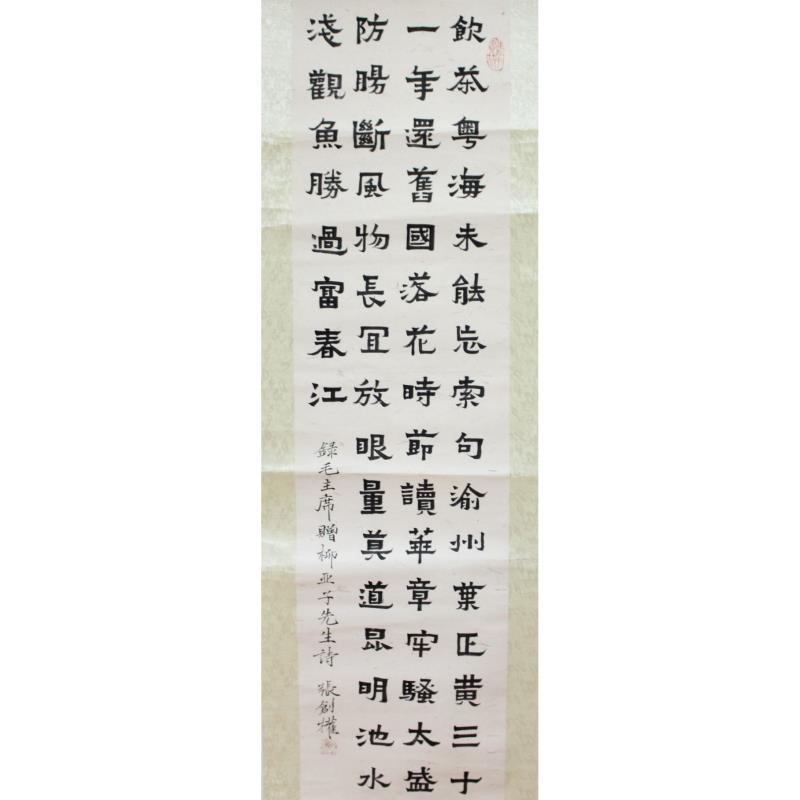 飲茶粵海未能忘索句渝州葉正黃三十
一年還舊國落花時節讀華章牢騷太盛
防腸斷風物長宜放眼量莫道昆明池水
淺觀魚勝過富春江
録毛主席贈柳亚子先生詩 張創權